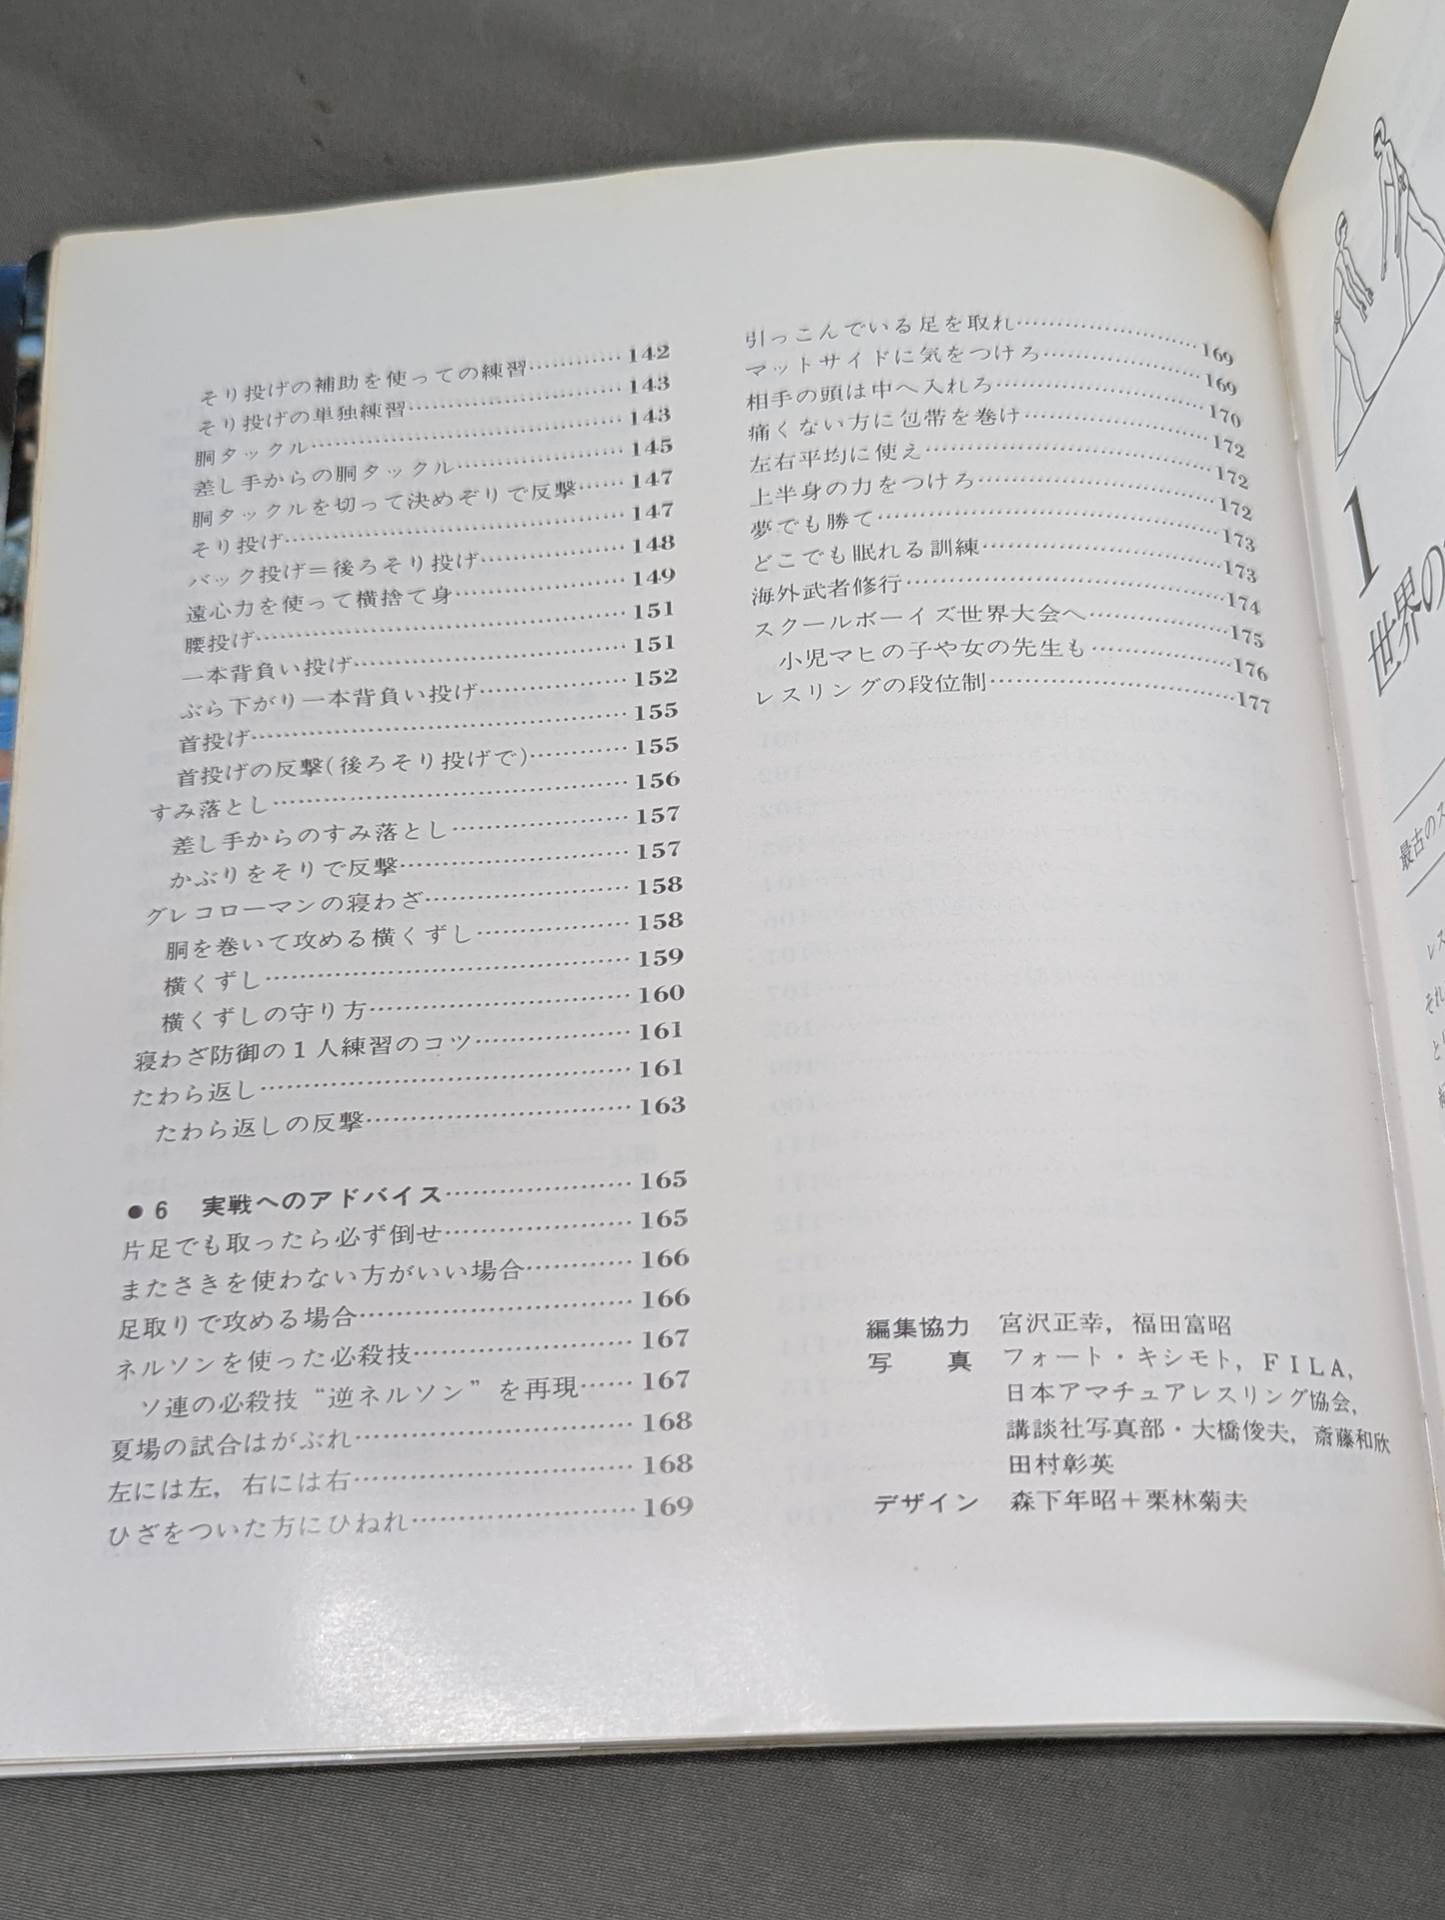 そり投げの補助を使っての練習…………142
そり投げの単独練習……………………143
胴タックル………………………………143
差し手からの胴タックル………………145
胴タックルを切って決めぞりで反撃……147
そり投げ…………………………………147
バック投げ＝後ろそり投げ……………148
遠心力を使って横捨て身………………149
腰投げ……………………………………151
一本背負い投げ…………………………151
ぶら下がり一本背負い投げ……………152
首投げ……………………………………155
首投げの反撃(後ろそり投げで)…………155
すみ落とし………………………………156
差し手からのすみ落とし………………157
かぶりをそりで反撃……………………157
グレコローマンの寝わざ………………158
胴を巻いて攻める横くずし……………158
横くずし…………………………………159
横くずしの守り方………………………160
寝わざ防御の1人練習のコツ……………161
たわら返し………………………………161
たわら返しの反撃………………………163
●6 実戦へのアドバイス…………………165
片足でも取ったら必ず倒せ……………165
またさきを使わない方がいい場合………166
足取りで攻める場合……………………166
ネルソンを使った必殺技………………167
ソ連の必殺技“逆ネルソン”を再現……167
夏場の試合はがぶれ……………………168
左には左，右には右……………………168
ひざをついた方にひねれ………………169
引っこんでいる足を取れ………………169
マットサイドに気をつけろ……………169
相手の頭は中へ入れろ…………………170
痛くない方に包帯を巻け………………172
左右平均に使え…………………………172
上半身の力をつけろ……………………172
夢でも勝て………………………………173
どこでも眠れる訓練……………………173
海外武者修行……………………………174
スクールボーイズ世界大会へ…………175
小児マヒの子や女の先生も……………176
レスリングの段位制……………………177
編集協力 宮沢正幸，福田富昭
写真 フォート・キシモト，FILA，
日本アマチュアレスリング協会，
講談社写真部・大橋俊夫，斎藤和欣
田村彰英
デザイン 森下年昭＋栗林菊夫
1
世界の
最古のス
レス
それ
と